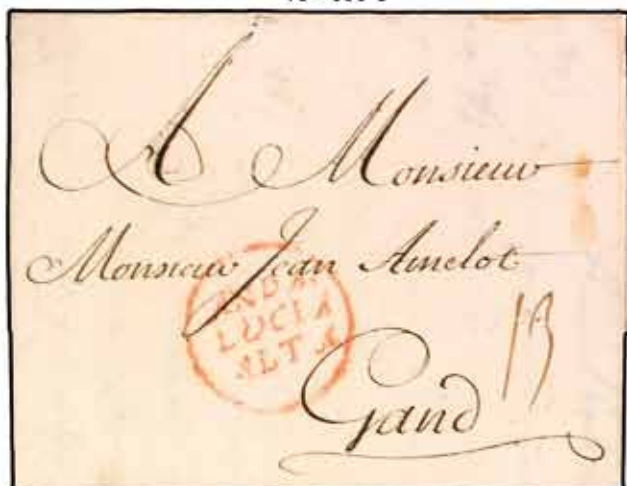 A Monsieur
Monsieur Jean Amelot
ANDA
LUCIA
ALTA
Gand
13